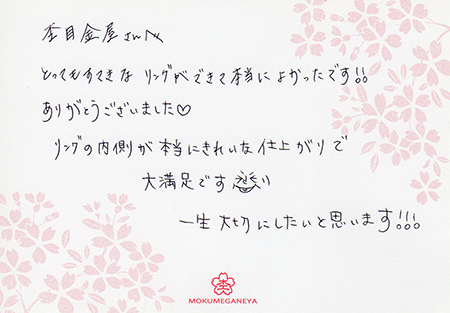 杢目金屋さんへ
とってもすてきな リングができて本当によかったです!!
ありがとうございました♡
リングの内側が本当にきれいな仕上がりで
大満足です
一生大切にしたいと思います!!!
MOKUMEGANEYA